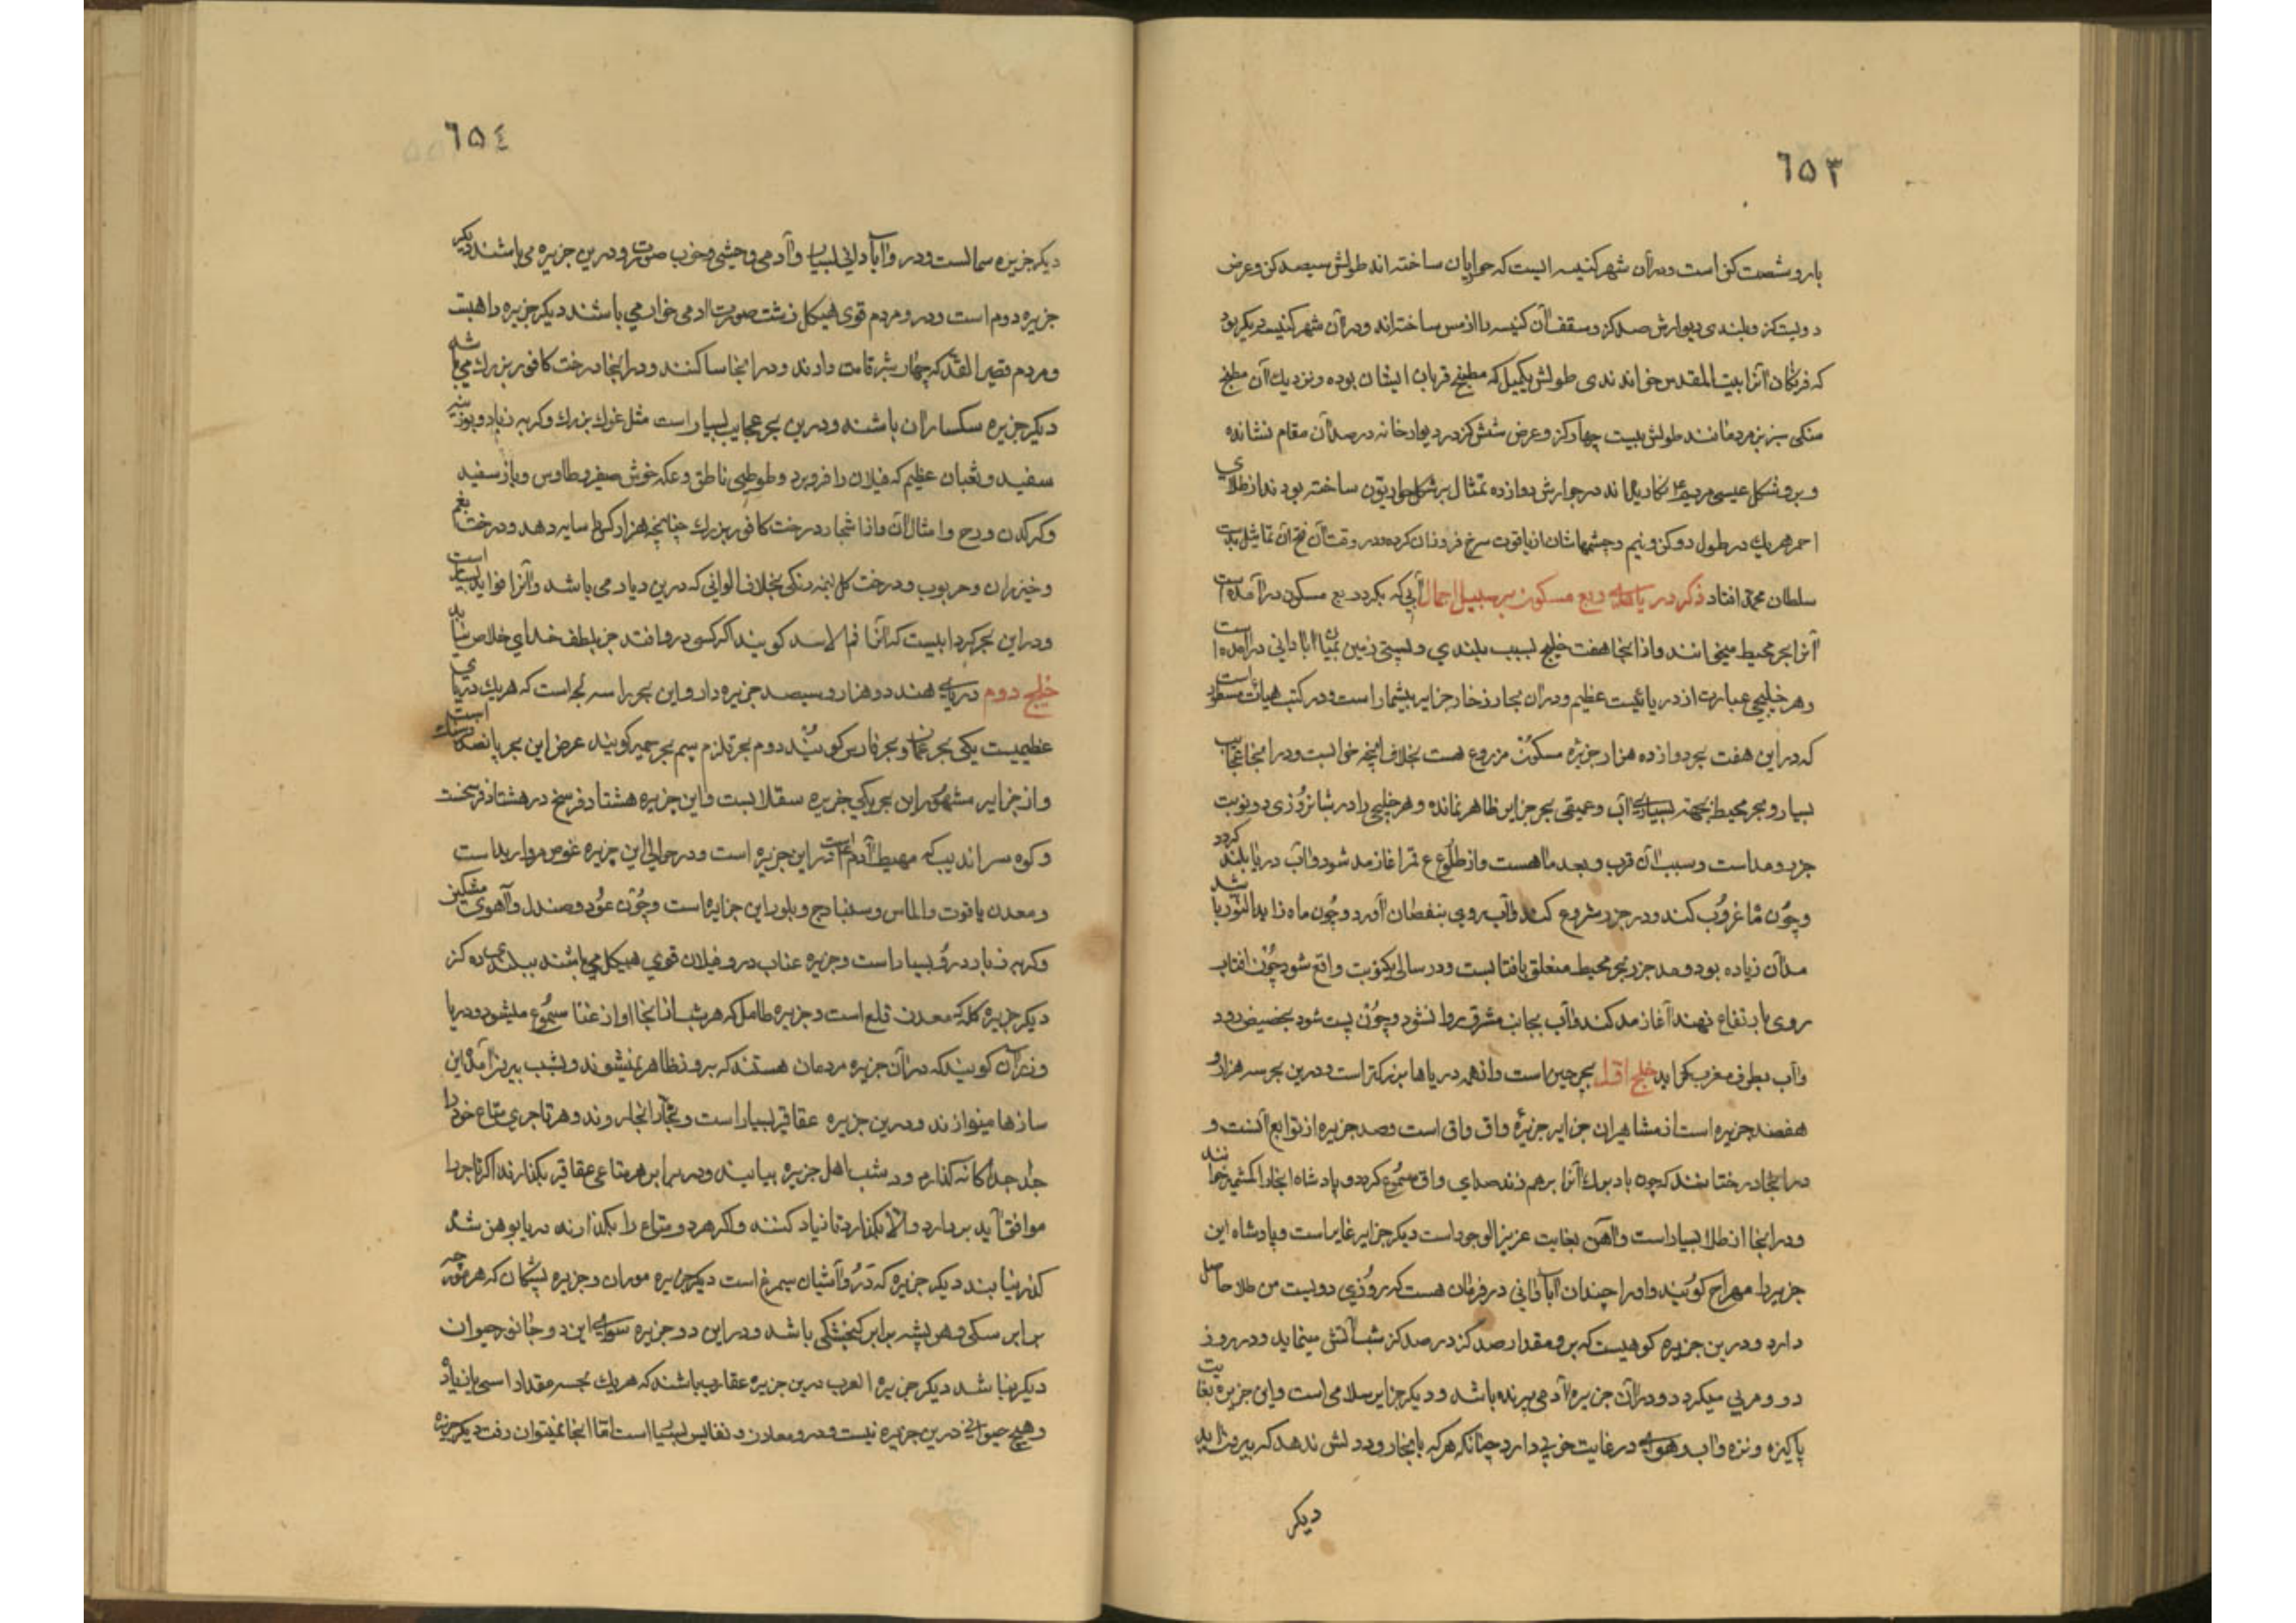 ٦٥٣
بارو شصت کز است ودرآن شهر کنیسه ایست که حواریان ساخته اند طولش سیصد کز وعرض
دویست کز وبلندی دیوارش صد کز وسقف آن کنیسه را از مس ساخته اند ودرآن شهر کنیسه دیکر بود
که فرنکان آنرا بیت المقدس خوانند ی طولش یکمیل که مطبخ قربان ایشان بوده ونزدیك آن مطبخ
سنکی سبز زمرد مانند طولش بیست چهار کز وعرض شش کز در دیوار خانه در صدر آن مقام نشانده
وبرو شکل عیسی مریم ع نکاریده اند در جوارش دوازده تمثال بر شکل حواریون ساخته بودند از طلای
احمر هریك در طول دو کز ونیم وچشمهاشان از یاقوت سرخ فروزان کرده در وقت آن فتح آن تماثیل بدست
سلطان محمد افتاد ذکر دریاهای ربع مسکون بر سبیل اجمال آبی که بکرد ربع مسکون درآمده است
آنرا بحر محیط میخوانند واز انجا هفت خلیج بسبب بلندی وپستی زمین بمیان آبادانی درآمده است
وهر خلیجی عبارت از دریائیست عظیم ودران بحار زخار جزایر بیشمار است ودر کتب هیأت مسطور است
که دراین هفت بحر دوازده هزار جزیره مسکون مزروع هست بخلاف آنچه خرابست ودرانجا عجایب
بسیار وبحر محیط بجهة بسیاری آب وعمیقی بحر جزایر ظاهر نمانده وهر خلیجی را در شبانروزی دو نوبت
جزر ومد است وسبب آن قرب وبعد ماهست واز طلوع قمر آغاز مد شود وآب دریا بلند کردد
وچون ماه غروب کند ودر جزر شروع کند وآب روی بنقصان آورد وچون ماه زاید النور باشد
مدآن زیاده بود ومد جزر بحر محیط متعلق بافتابست ودر سالی یکنوبت واقع شود چون افتاب
روی بارتفاع نهند آغاز مد کند وآب بجانب مشرق روانشود وچون پست شود بحضیض رود
وآب بطرف مغرب کراید خلیج اول بحر چین است وازهمه دریاها بزرکتر است ودرین بحر سه هزار و
هفصد جزیره است از مشاهیران جزایر جزیرهٔ واق واق است وصد جزیره از توابع آنست و
درانجا درختانند که چون باد برك آنرا برهم زند صدای واق مسموع کردد وپادشاه انجا را کشمیر خوانند
ودرانجا از طلا بسیار است وآهن بغایت عزیز الوجود است دیکر جزایر غایر است وپادشاه این
جزیره را مهراج کویند واورا چندان آبادانی در فرمان هست که هر روزی دویست من طلا حاصل
دارد ودرین جزیره کوهیست که برو مقدار صد کز در صد کز شب آتش مینماید ودر روز
دود ومرئی میکردد ودرآن جزیره آدمی پرنده باشد ودیکر جزایر سلامی است واین جزیره بغایت
پاکیزه ونزه وآب وهوای در غایت خوبی دارد چنانکه هرکه بانجا رود دلش ندهد که بیرون آید
دیکر
٦٥٤
دیکر جزیره سمالست ودرو آبادانی بسیار وآدمی وحشی وخوب صورت ودرین جزیره می باشند دیکر
جزیره دوم است ودرو مردم قوی هیکل زشت صورت آدمی خوار می باشند دیکر جزیره داهبت
ومردم قصیر القد که چهار شبر قامت دارند ودرانجا ساکنند ودرانجا درخت کافور بزرك می باشد
دیکر جزیره سکساران باشند ودرین بحر عجایب بسیار است مثل غوك بزرك وکربه زباد وبوزنیه
سفید وثعبان عظیم که فیلان را فرو برد وطوطی ناطق وعکه خوش صفیر وطاوس وباز سفید
وکرکدن ورح وامثال آن واز اشجار درخت کافور بزرك چنانچه هزار کس را سایه دهد ودرخت بقم
وخیزران وحربوب ودرخت کل پنبه رنکی بخلاف الوانی که درین دیار می باشد وآنرا فواید بسیار است
ودراین بحر کردابیست که آنرا فم الاسد کویند اکر کسی درو افتد جز بلطف خدای خلاص نیابد
خلیج دوم دریای هند دو هزار وسیصد جزیره دارد واین بحر را سه لجه است که هریك دریای
عظیمیست یکی بحر عمان وبحر فارس کویند دوم بحر قلزم سیم بحر حمیر کویند عرض این بحر پانصد فرسنك است
واز جزایر مشهور این بحر یکی جزیره سقلابست واین جزیره هشتاد فرسخ در هشتاد فرسخست
وکوه سراندیب که مهبط آدم ع است دراین جزیره است ودر حوالی این جزیره غوص مروارید است
ومعدن یاقوت والماس وسنبادج وبلور این جزایر است وچون عود وصندل وآهوی مشکین
وکربه زباد درو بسیار است وجزیره عناب درو فیلان قوی هیکل می باشند ببلندی ده کز
دیکر جزیره کله که معدن قلع است وجزیره طامل که هر شب از انجا آواز غنا مسموع میشود ودریا
ورزان کویند که درآن جزیره مردمان هستند که بروز ظاهر نمیشوند وبشب بیرون آمده این
سازها مینوازند ودرین جزیره عقاقیر بسیار است وتجار انجا روند وهر تاجری متاع خود را
جدا جدا کانه کذارد ودر شب اهل جزیره بیایند ودر برابر هر متاعی عقاقیر بکذارند اکر تاجر را
موافق آید بردارد والا بکذارد تا زیاد کنند واکر هر دو متاع را بکذارند دریا بوهن شده
کذر نیابند دیکر جزیره که درو آشیان سیمرغ است دیکر جزیره موران وجزیره پشکان که هر مورچه
برابر سکی وهر پشه برابر کنجشکی باشد ودراین دو جزیره سوای این دو جانور حیوان
دیکر نباشد دیکر جزیره العرب درین جزیره عقارب باشند که هریك بجسم مقدار اسبی یا زیاده
وهیچ حیوانی درین جزیره نیست ودرو معادن ونفایس بسیار است اما انجا نمیتوان رفت دیکر جزیره